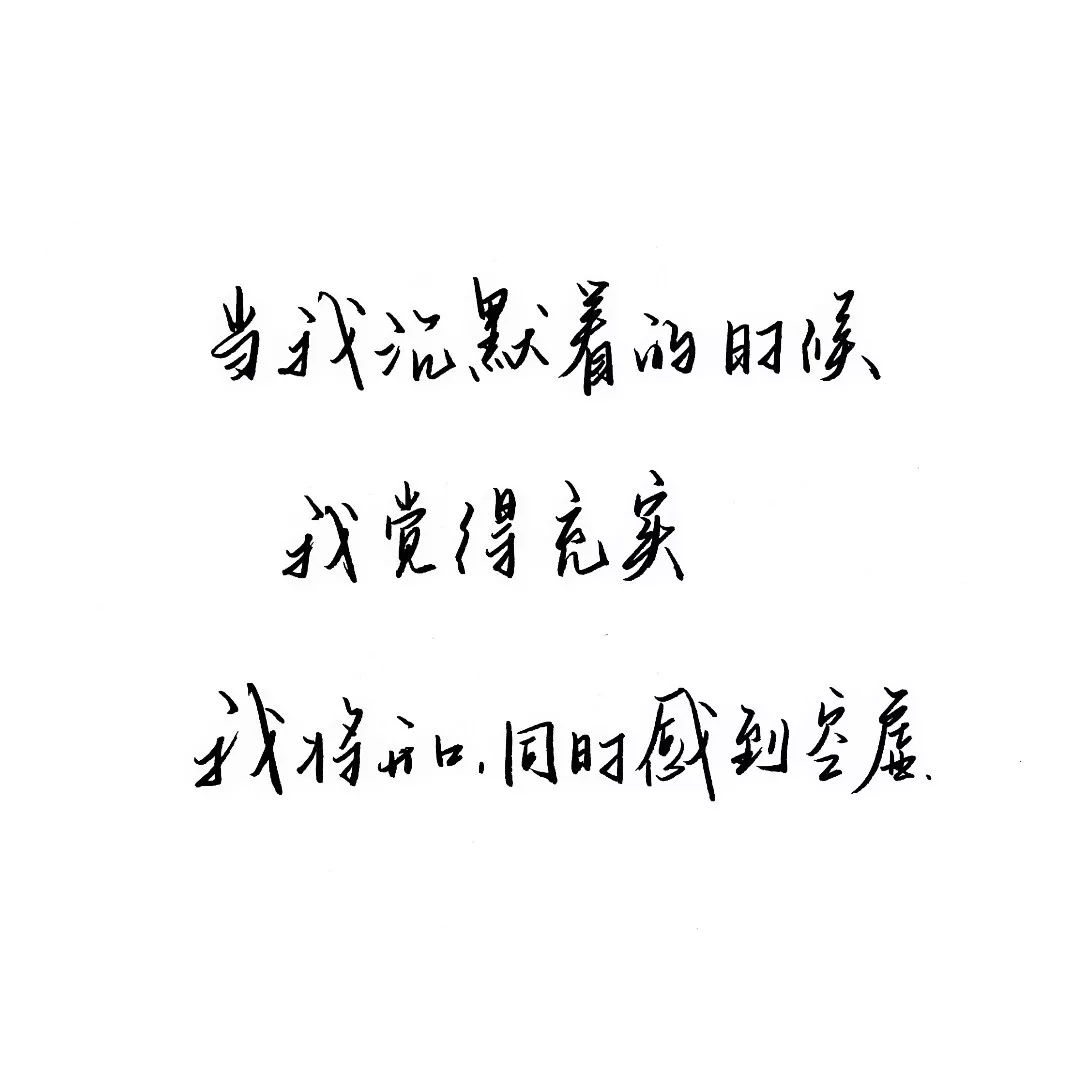 当我沉默着的时候
我觉得充实
我将开口,同时感到空虚.